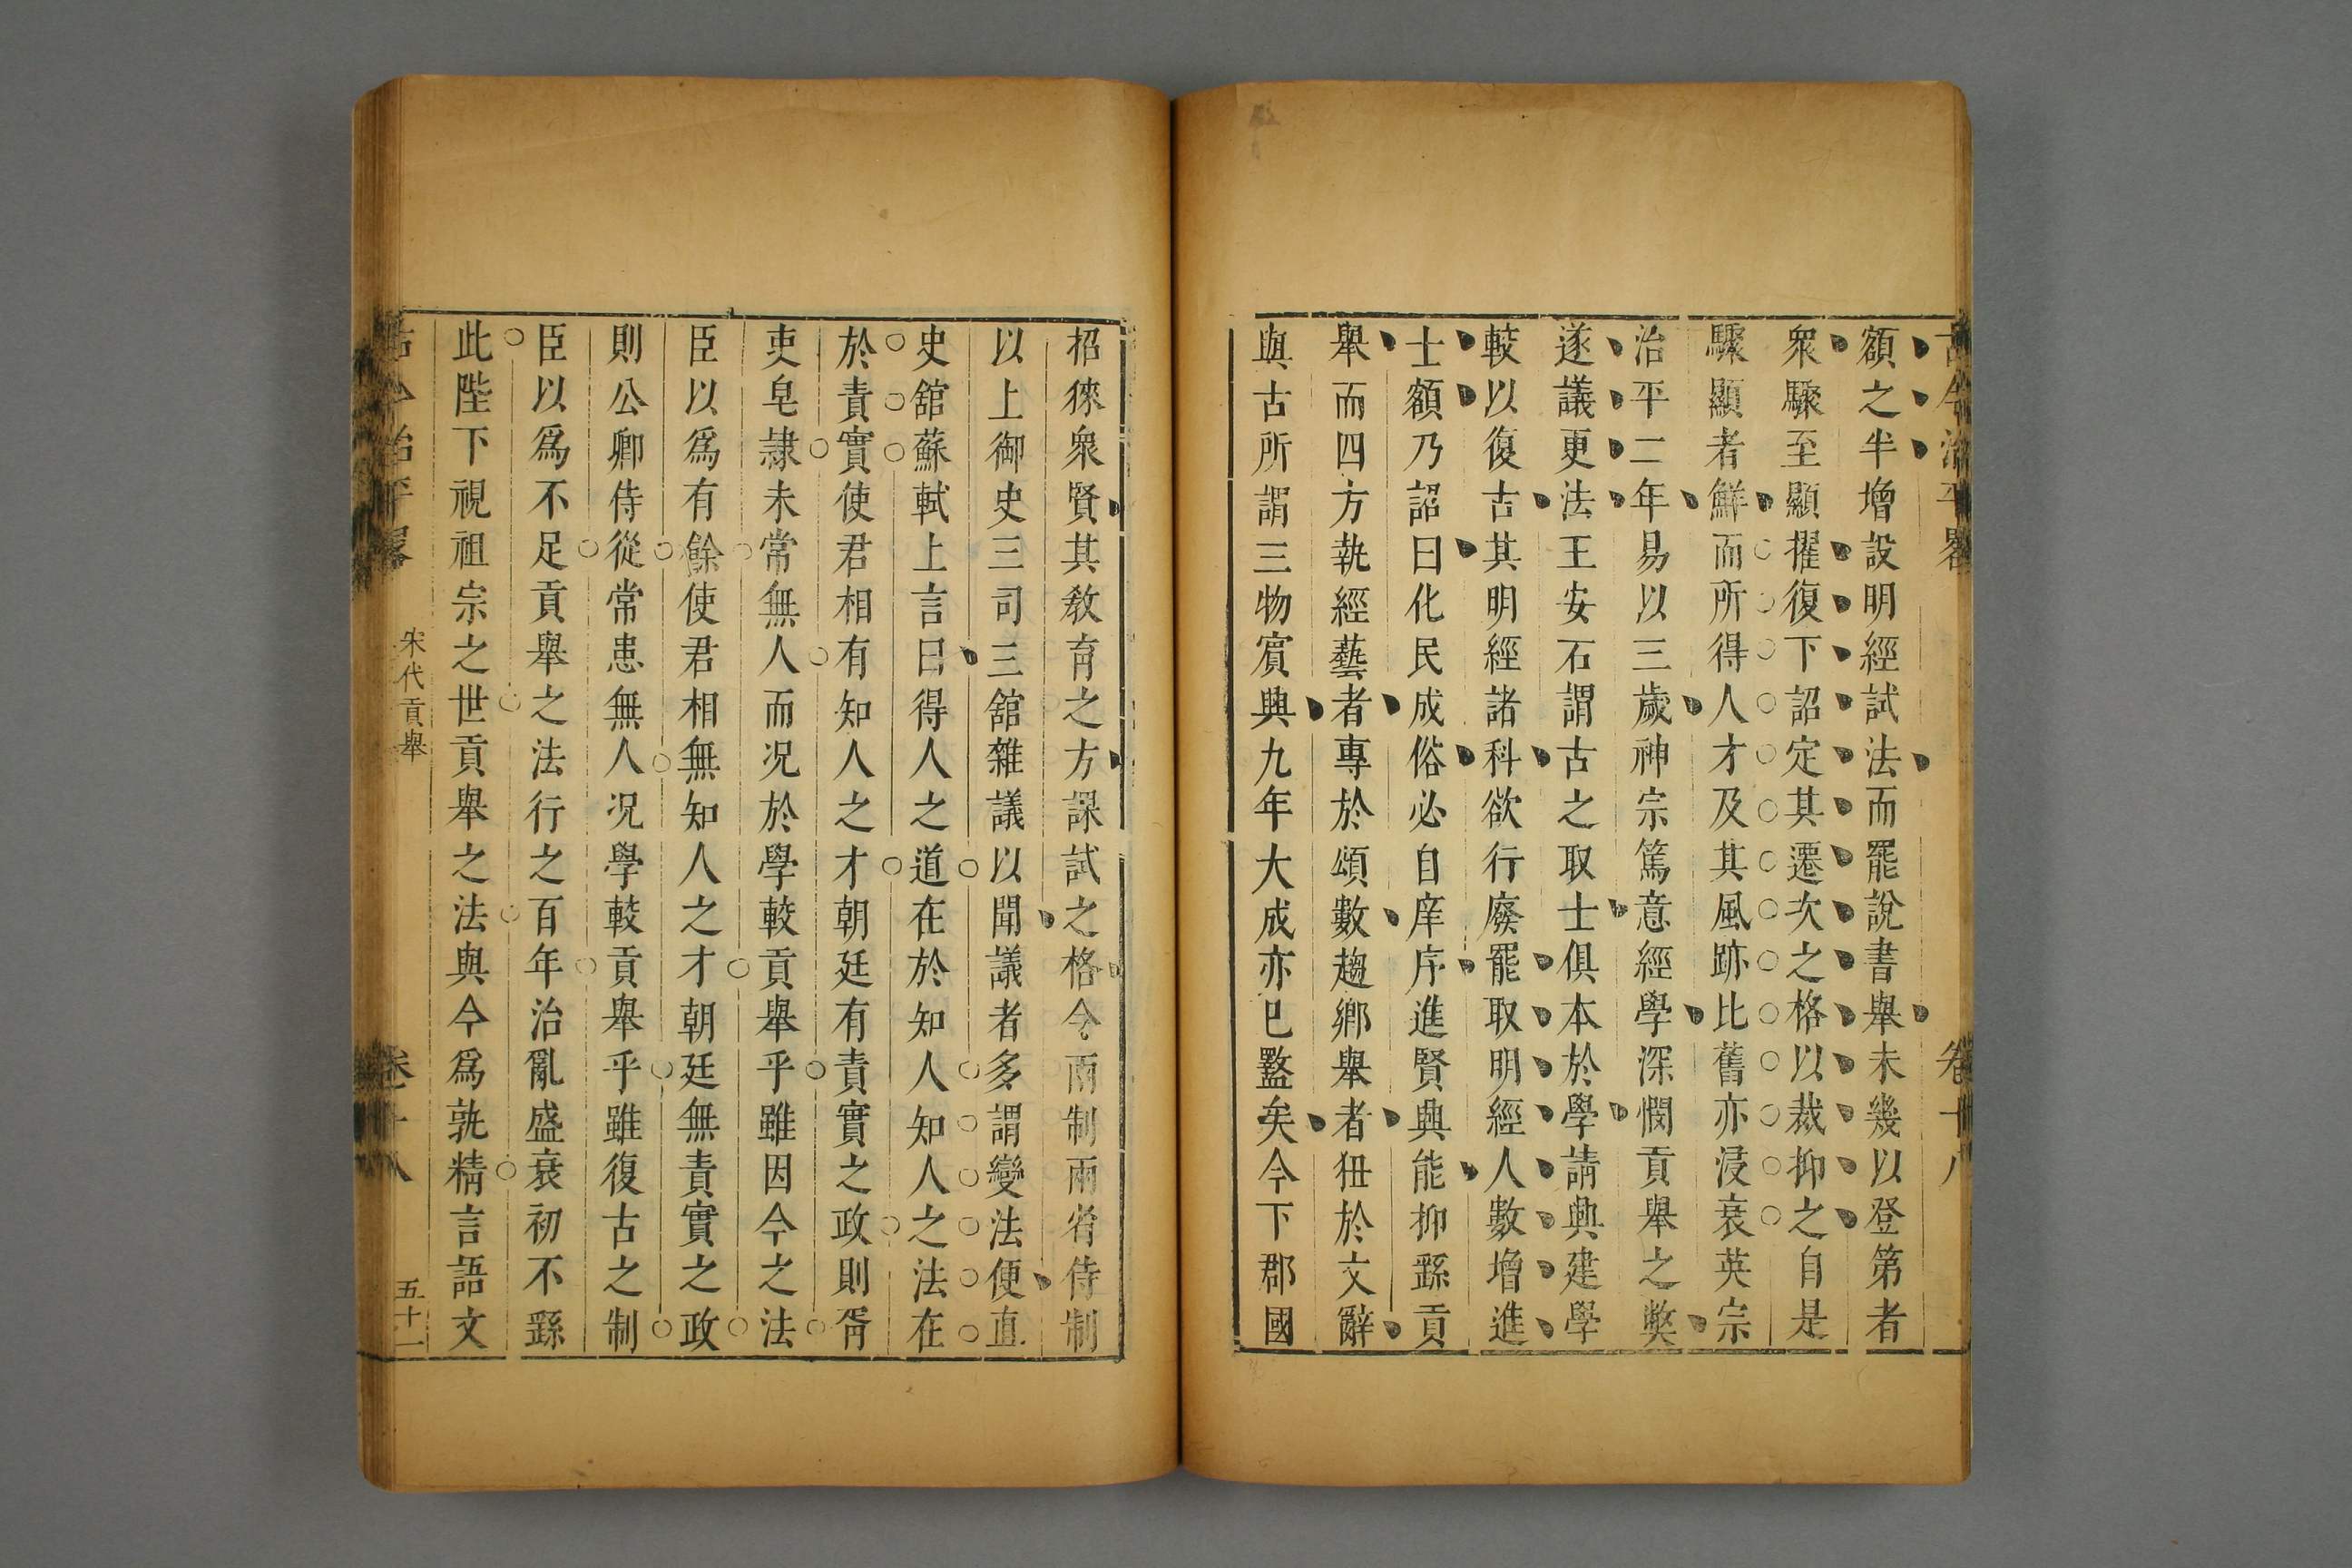 古今治平畧 卷十八
額之半增設明經試法而罷說書舉未幾以登第者
衆驟至顯擢復下詔定其遷次之格以裁抑之自是
驟顯者鮮而所得人才及其風跡比舊亦浸衰英宗
治平二年易以三歲神宗篤意經學深憫貢舉之獘
遂議更法王安石謂古之取士俱本於學請興建學
較以復古其明經諸科欲行廢罷取明經人數增進
士額乃詔曰化民成俗必自庠序進賢興能抑繇貢
舉而四方執經藝者專於頌數趨鄉舉者狃於文辭
與古所謂三物賓興九年大成亦已盭矣今下郡國
招徠衆賢其教育之方課試之格令兩制兩省待制
以上御史三司三舘雜議以聞議者多謂變法便直
史舘蘇軾上言曰得人之道在於知人知人之法在
於責實使君相有知人之才朝廷有責實之政則胥
吏皂隷未常無人而况於學較貢舉乎雖因今之法
臣以爲有餘使君相無知人之才朝廷無責實之政
則公卿侍從常患無人况學較貢舉乎雖復古之制
臣以爲不足貢舉之法行之百年治亂盛衰初不繇
此陛下視祖宗之世貢舉之法與今爲孰精言語文
古今治平畧 宋代貢舉 卷十八 五十一